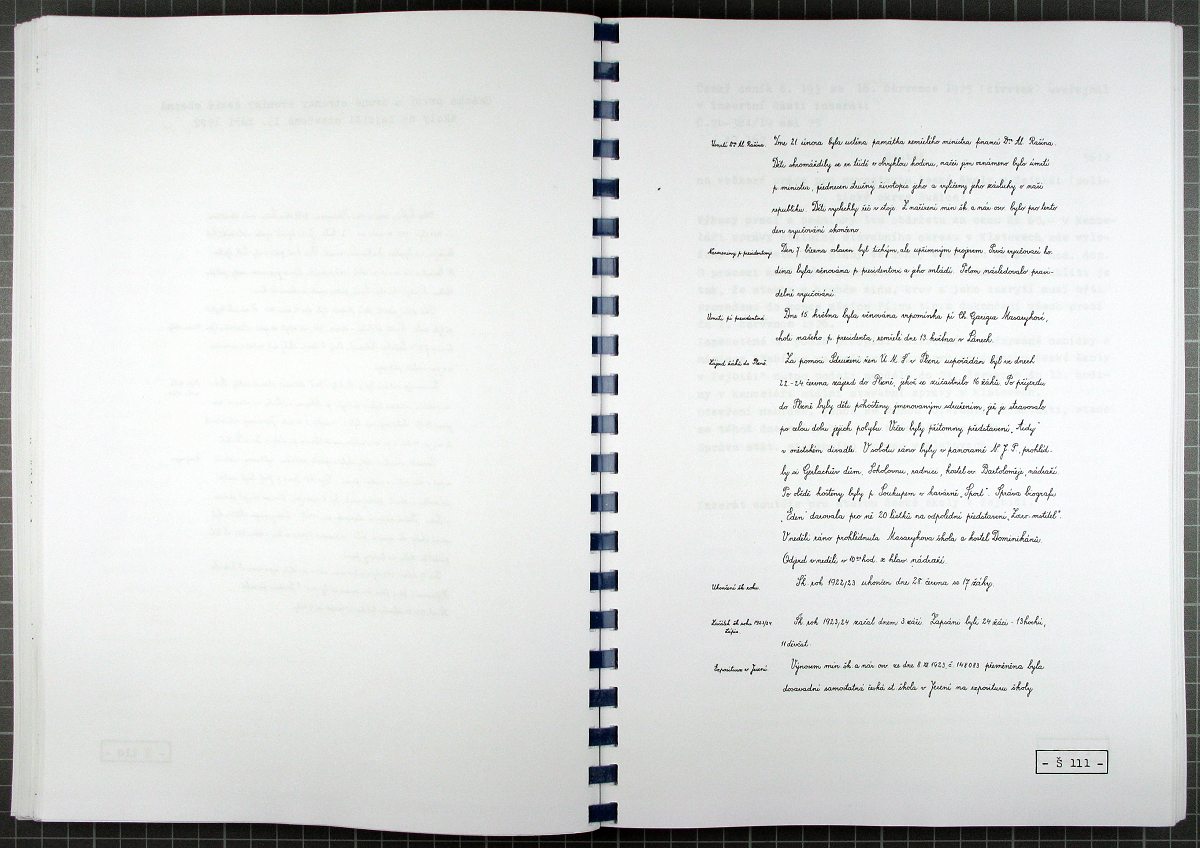 Úmrtí Dra Al. Rašína. Dne 21 února byla uctěna památka zemřelého ministra financí Dra Al. Rašína.
Děti shromáždily se ve třídě v obvyklou hodinu, načež jim oznámeno bylo úmrtí
p. ministra, přednesen stručný životopis jeho a vylíčeny jeho zásluhy o naši
republiku. Děti vyslechly řeč v stoje. Z nařízení min. šk. a nár. osv. bylo pro tento
den vyučování skončeno.
Narozeniny p. presidentovy. Den 7. března oslaven byl tichým, ale upřímným projevem. Prvá vyučovací ho-
dina byla věnována p. presidentovi a jeho mládí. Potom následovalo pravi-
delné vyučování.
Úmrtí pí presidentové. Dne 15. května byla věnována vzpomínka pí Ch. Garrigue Masarykové,
choti našeho p. presidenta, zemřelé dne 13. května v Lánech.
Zájezd žáků do Plzně. Za pomoci Sdružení žen Ú. M. Š. v Plzni uspořádán byl ve dnech
22-24 června zájezd do Plzně, jehož se zúčastnilo 16 žáků. Po příjezdu
do Plzně byly děti pohoštěny jmenovaným sdružením, jež je stravovalo
po celou dobu jejich pobytu. Večer byly přítomny představení "Aidy"
v městském divadle. V sobotu ráno byly v panoramě N. J. P., prohléd-
ly si Gerlachův dům, Sokolovnu, radnici, kostel sv. Bartoloměje, nádraží.
Po obědě hoštěny byly p. Soukupem v kavárně "Sport". Správa biografu
"Eden" darovala pro ně 20 lístků na odpolední představení "Zorro mstitel".
V neděli ráno prohlédnuta Masarykova škola a kostel Dominikánů.
Odjezd v neděli v hod. z hlav. nádraží.
Ukončení šk. roku. Šk. rok 1922/23 ukončen dne 28. června se 17 žáky.
Začátek šk. roku 1923/24 Šk. rok 1923/24 začal dnem 3. září. Zapsáni byli 24 žáci - 13 hochů,
Zápis
11 děvčat.
Expositura v Jesení Výnosem min. šk. a nár. osv. ze dne 8.XI 1923 č. 148083 přeměněna byla
dosavadní samostatná česká st. škola v Jesení na exposituru školy
- Š 111 -